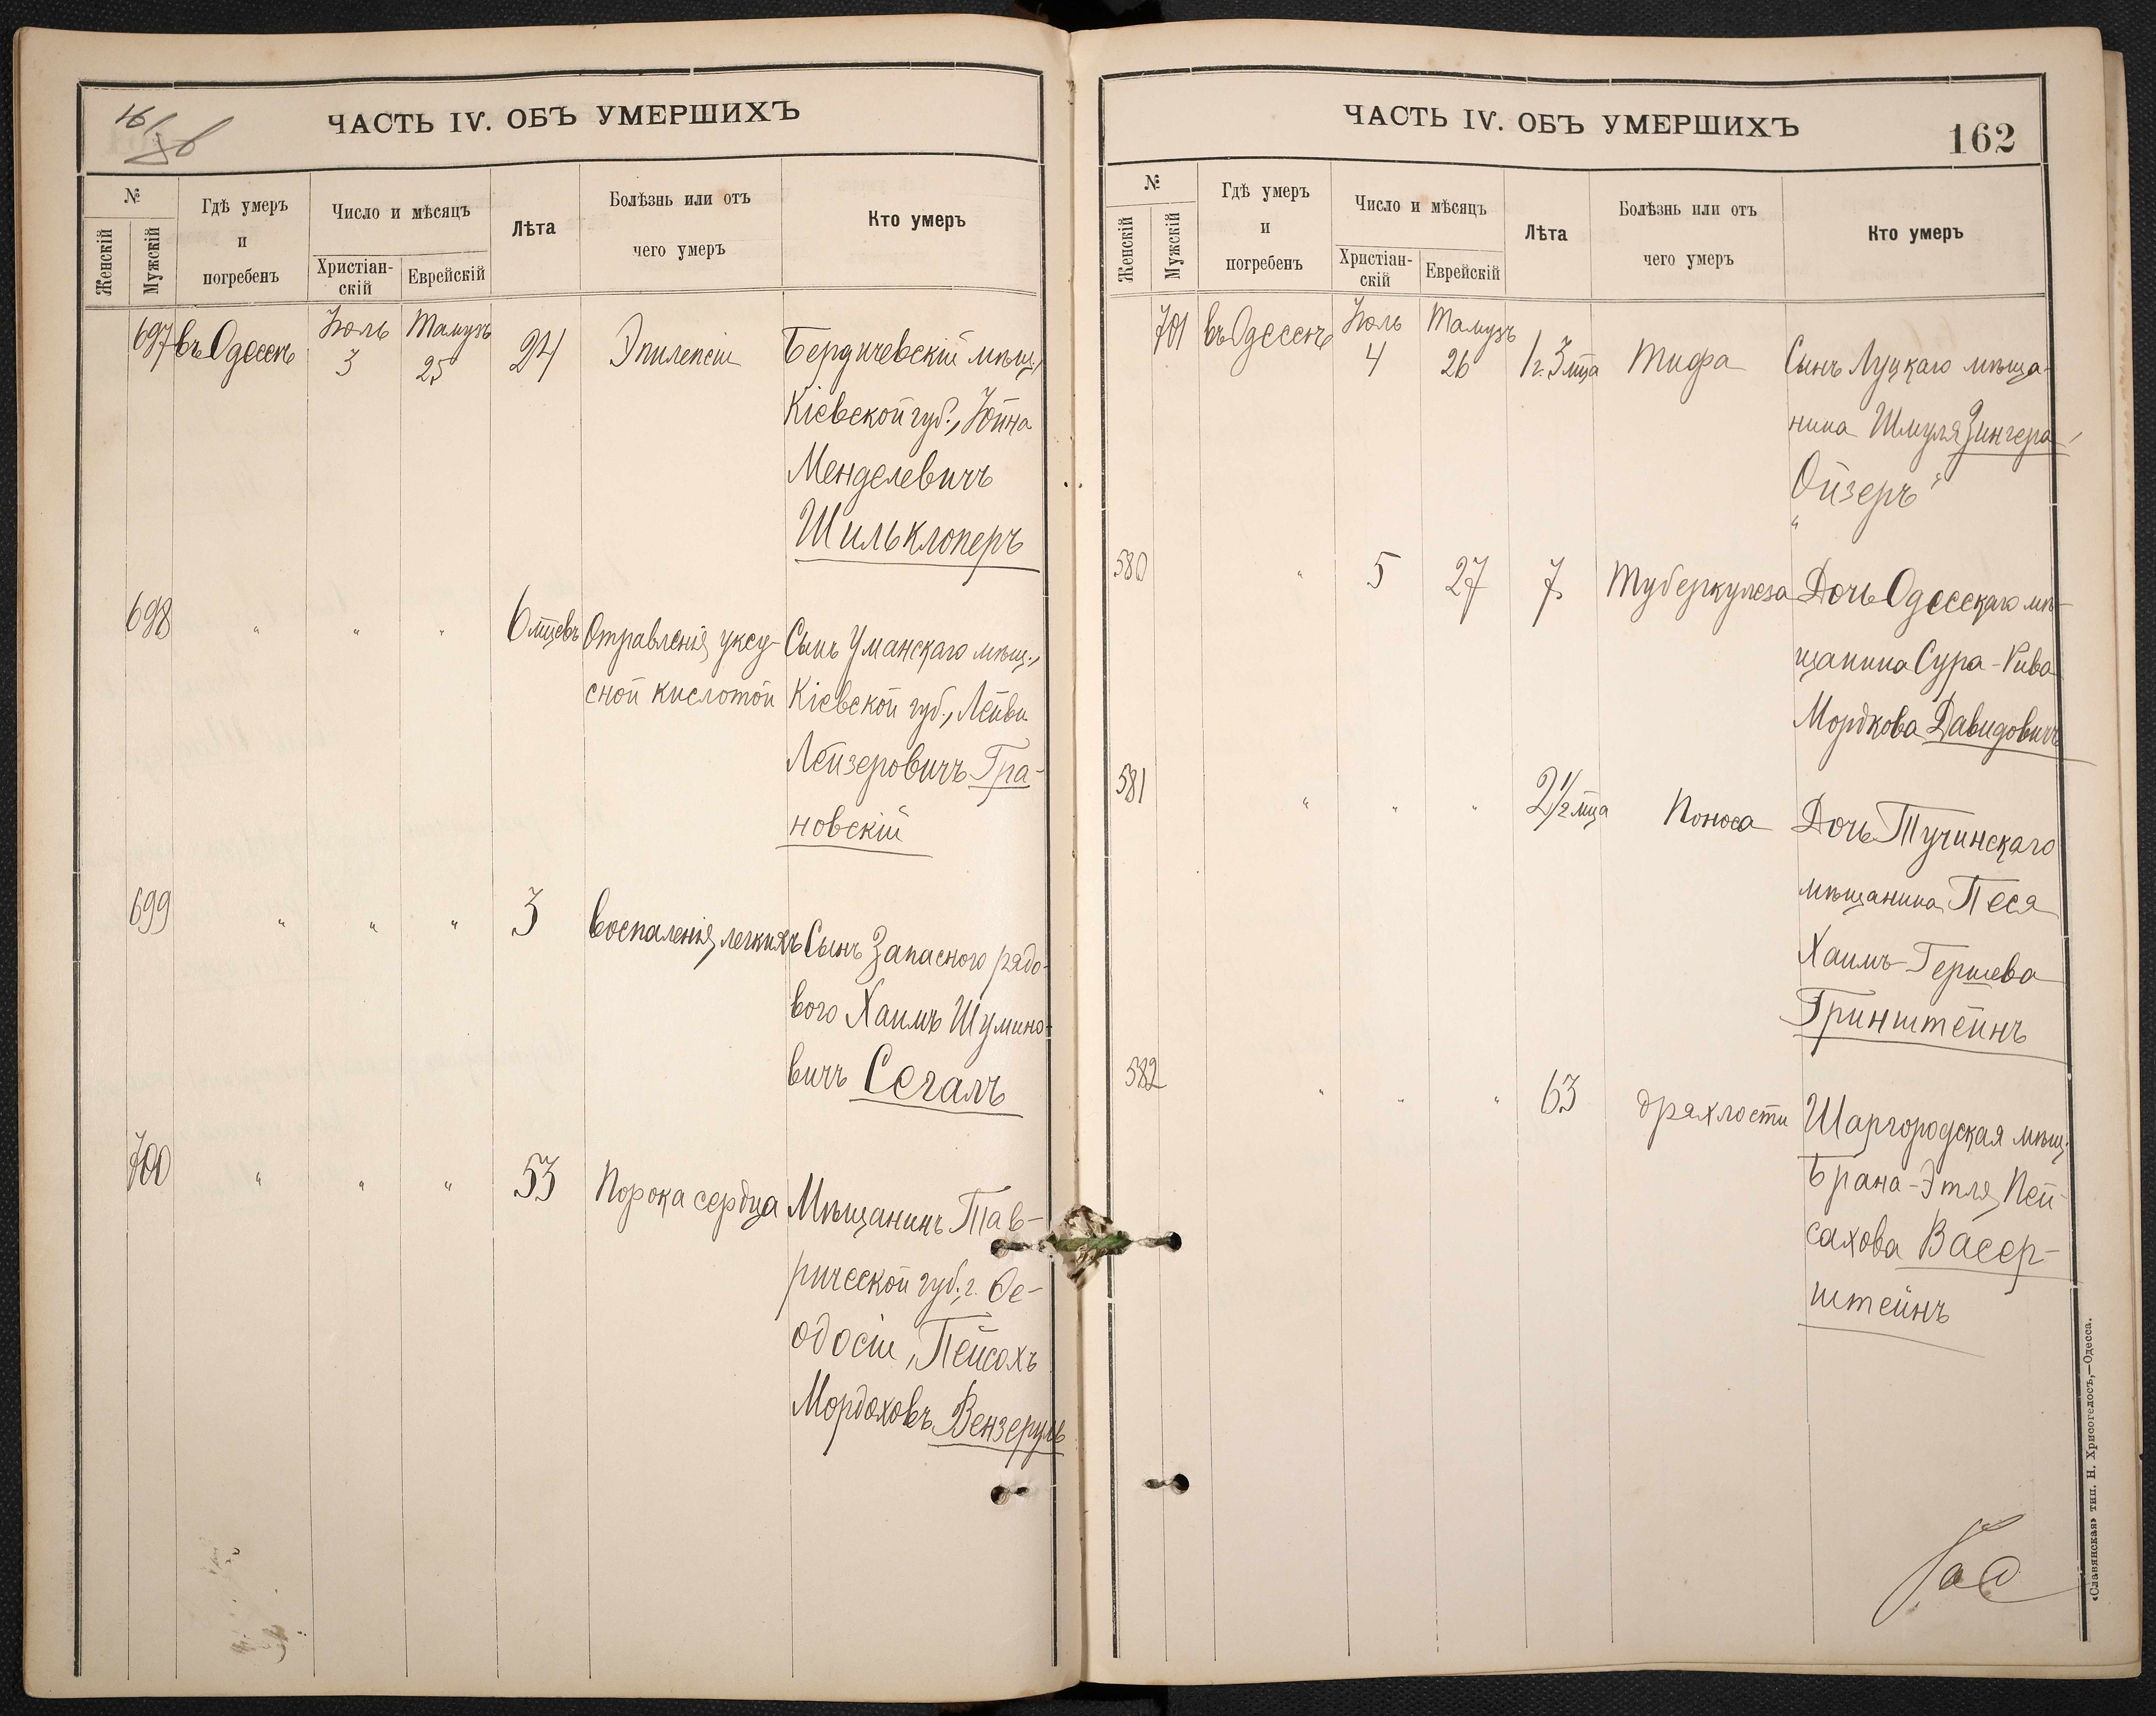 161/об
ЧАСТЬ IV. ОБЪ УМЕРШИХЪ
№
Женскій
Мужскій
Гдѣ умеръ
и
погребенъ
Число и мѣсяцъ
Христіан-
скій
Еврейскій
Лѣта
Болѣзнь или отъ
чего умеръ
Кто умеръ
697 въ Одессѣ Іюль 3 Тамузъ 25 24 Эпилепсіи Бердичевскій мѣщ.,
Кіевской губ., Іойна
Менделевичъ
Шильклоперъ
698 " " " 6 мцевъ Отравленія уксу- Сынъ Уманскаго мѣщ.,
сной кислотой Кіевской губ., Лейви
Лейзеровичъ Гра-
новскій
699 " " " 3 Воспаленія легкихъ Сынъ Запасного рядо-
вого Хаимъ Шумино-
вичъ Сегалъ
700 " " " 53 Порока сердца Мѣщанинъ Тав-
рической губ., г. Ѳе-
одосіи, Пейсахъ
Мордоховъ Вензеруль
ЧАСТЬ IV. ОБЪ УМЕРШИХЪ
162
№
Женскій
Мужскій
Гдѣ умеръ
и
погребенъ
Число и мѣсяцъ
Христіан-
скій
Еврейскій
Лѣта
Болѣзнь или отъ
чего умеръ
Кто умеръ
701 въ Одессѣ Іюль 4 Тамузъ 26 1 г. 3 мца Тифа Сынъ Луцкаго мѣща-
нина Шмуля Зингера,
„Ойзеръ“
580 " 5 27 7. Туберкулеза Дочь Одесскаго мѣ-
щанина Сура-Рива
Мордкова Давидовичъ
581 " " " 2 1/2 мца Поноса Дочь Тучинскаго
мѣщанина Песя
Хаимъ-Гершева
Гринштейнъ
582 " " " 63 дряхлости Шаргородская мѣщ.
Брана-Этля Пей-
сахова Васер-
штейнъ
«Славянская» тип. Н. Хрисогелосъ,—Одесса.